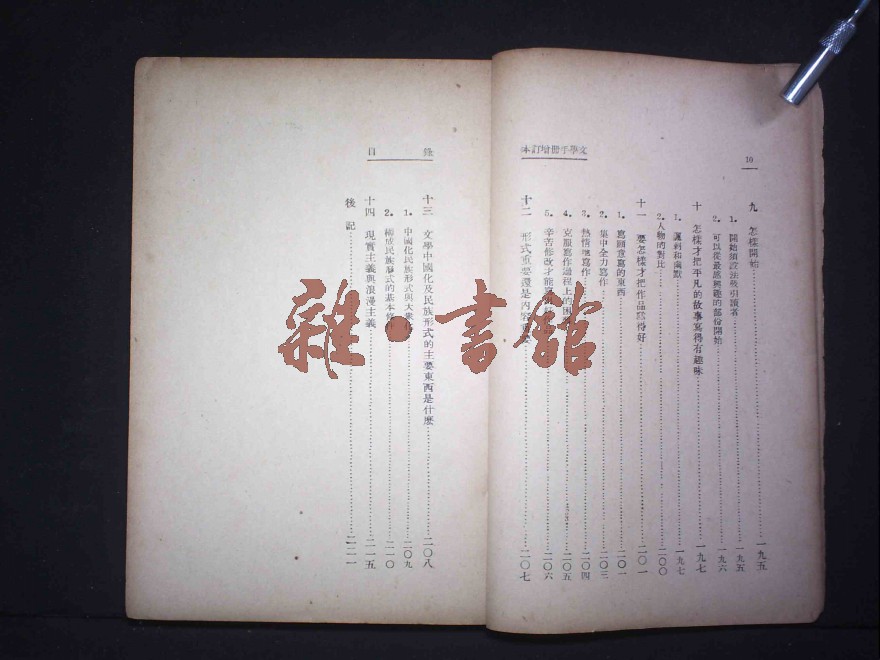 10
文學手冊增訂本
九 怎樣開始……一九五
1. 開始須設法吸引讀者……一九五
2. 可以從最感興趣的部份開始……一九六
十 怎樣才把平凡的故事寫得有趣味……一九七
1. 諷刺和幽默……一九七
2. 人物的對比……二〇〇
十一 要怎樣才把作品寫得好……二〇一
1. 寫願意寫的東西……二〇一
2. 集中全力寫作……二〇三
3. 熱情地寫作……二〇四
4. 克服寫作過程上的困難……二〇五
5. 辛苦修改才能……二〇六
十二 形式重要還是內容重要……二〇七
目錄
十三 文學中國化及民族形式的主要東西是什麽……二〇八
1. 中國化民族形式與大衆化……二〇九
2. 構成民族形式的基本條件……二一〇
十四 現實主義與浪漫主義……二一五
後記……二二一
雜·書館